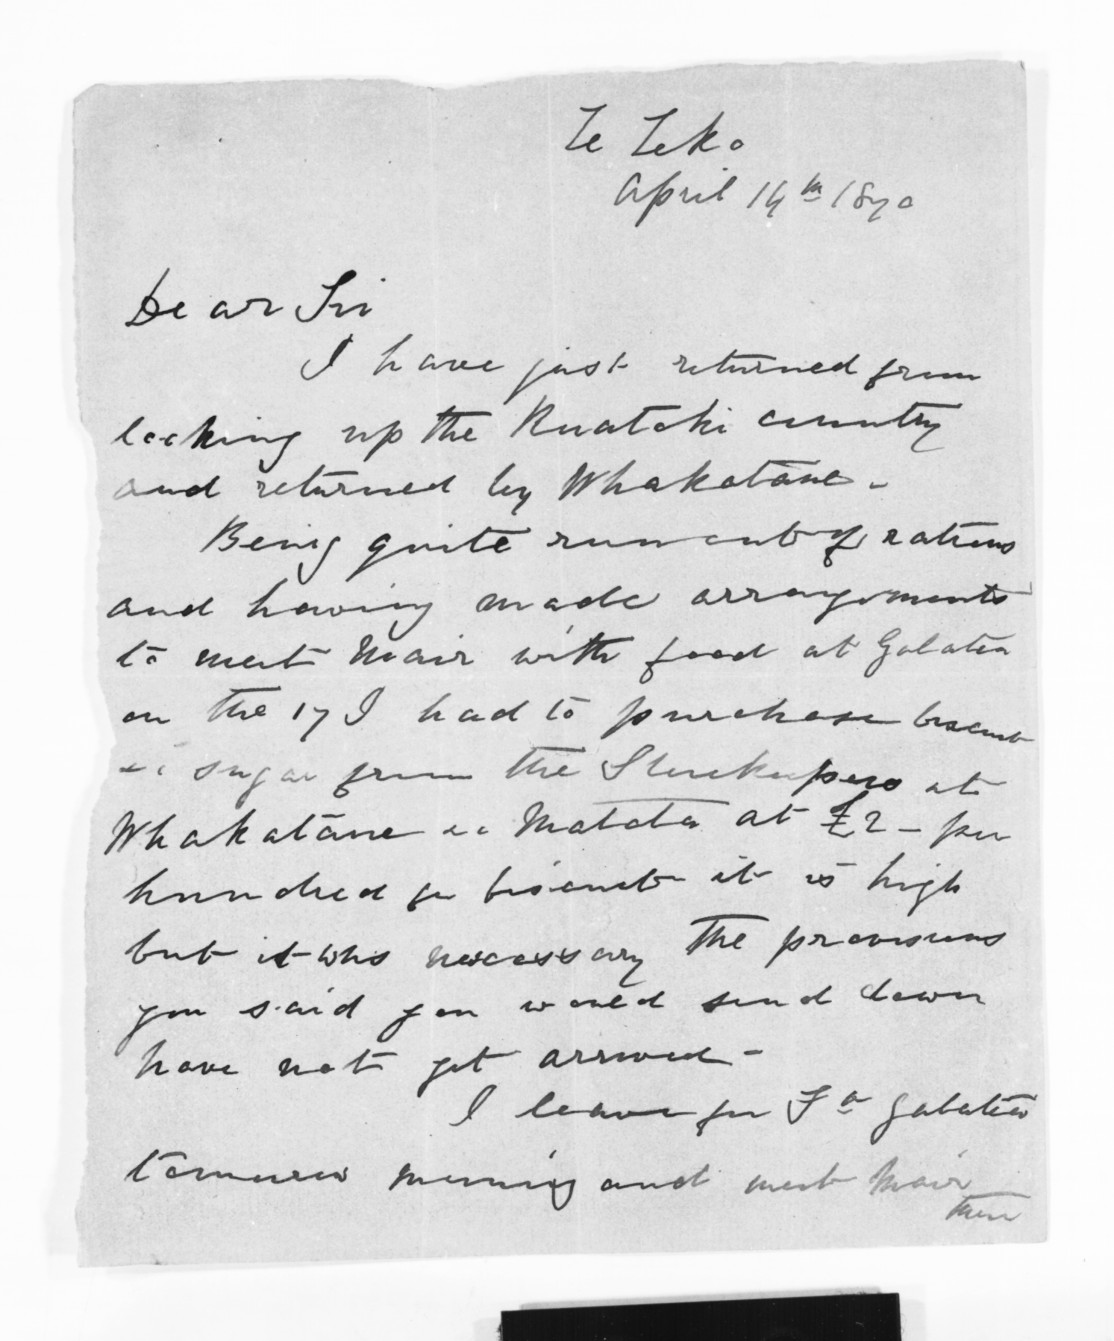 Te Teko
April 14th 1870
Dear Sir
I have just returned from
looking up the Ruatoki country
and returned by Whakatane -
Being quite run out of rations
and having made arrangements
to meet Mair with food at Galatea
on the 17 I had to purchase biscuit
& sugar from the Storekeepers at
Whakatane & Matata at £2 - per
hundred for biscuit it is high
but it was necessary The provisions
you said you would send down
have not yet arrived -
I leave for Ft Galatea
tomorrow morning and meet Mair
there